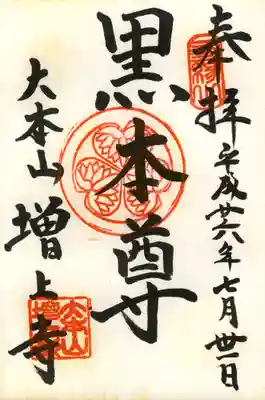 奉拝 平成廿六年七月卅一日
黒本尊
大本山 増上寺